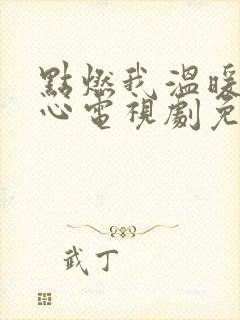 點燃我溫暖
心電視劇免
武丁